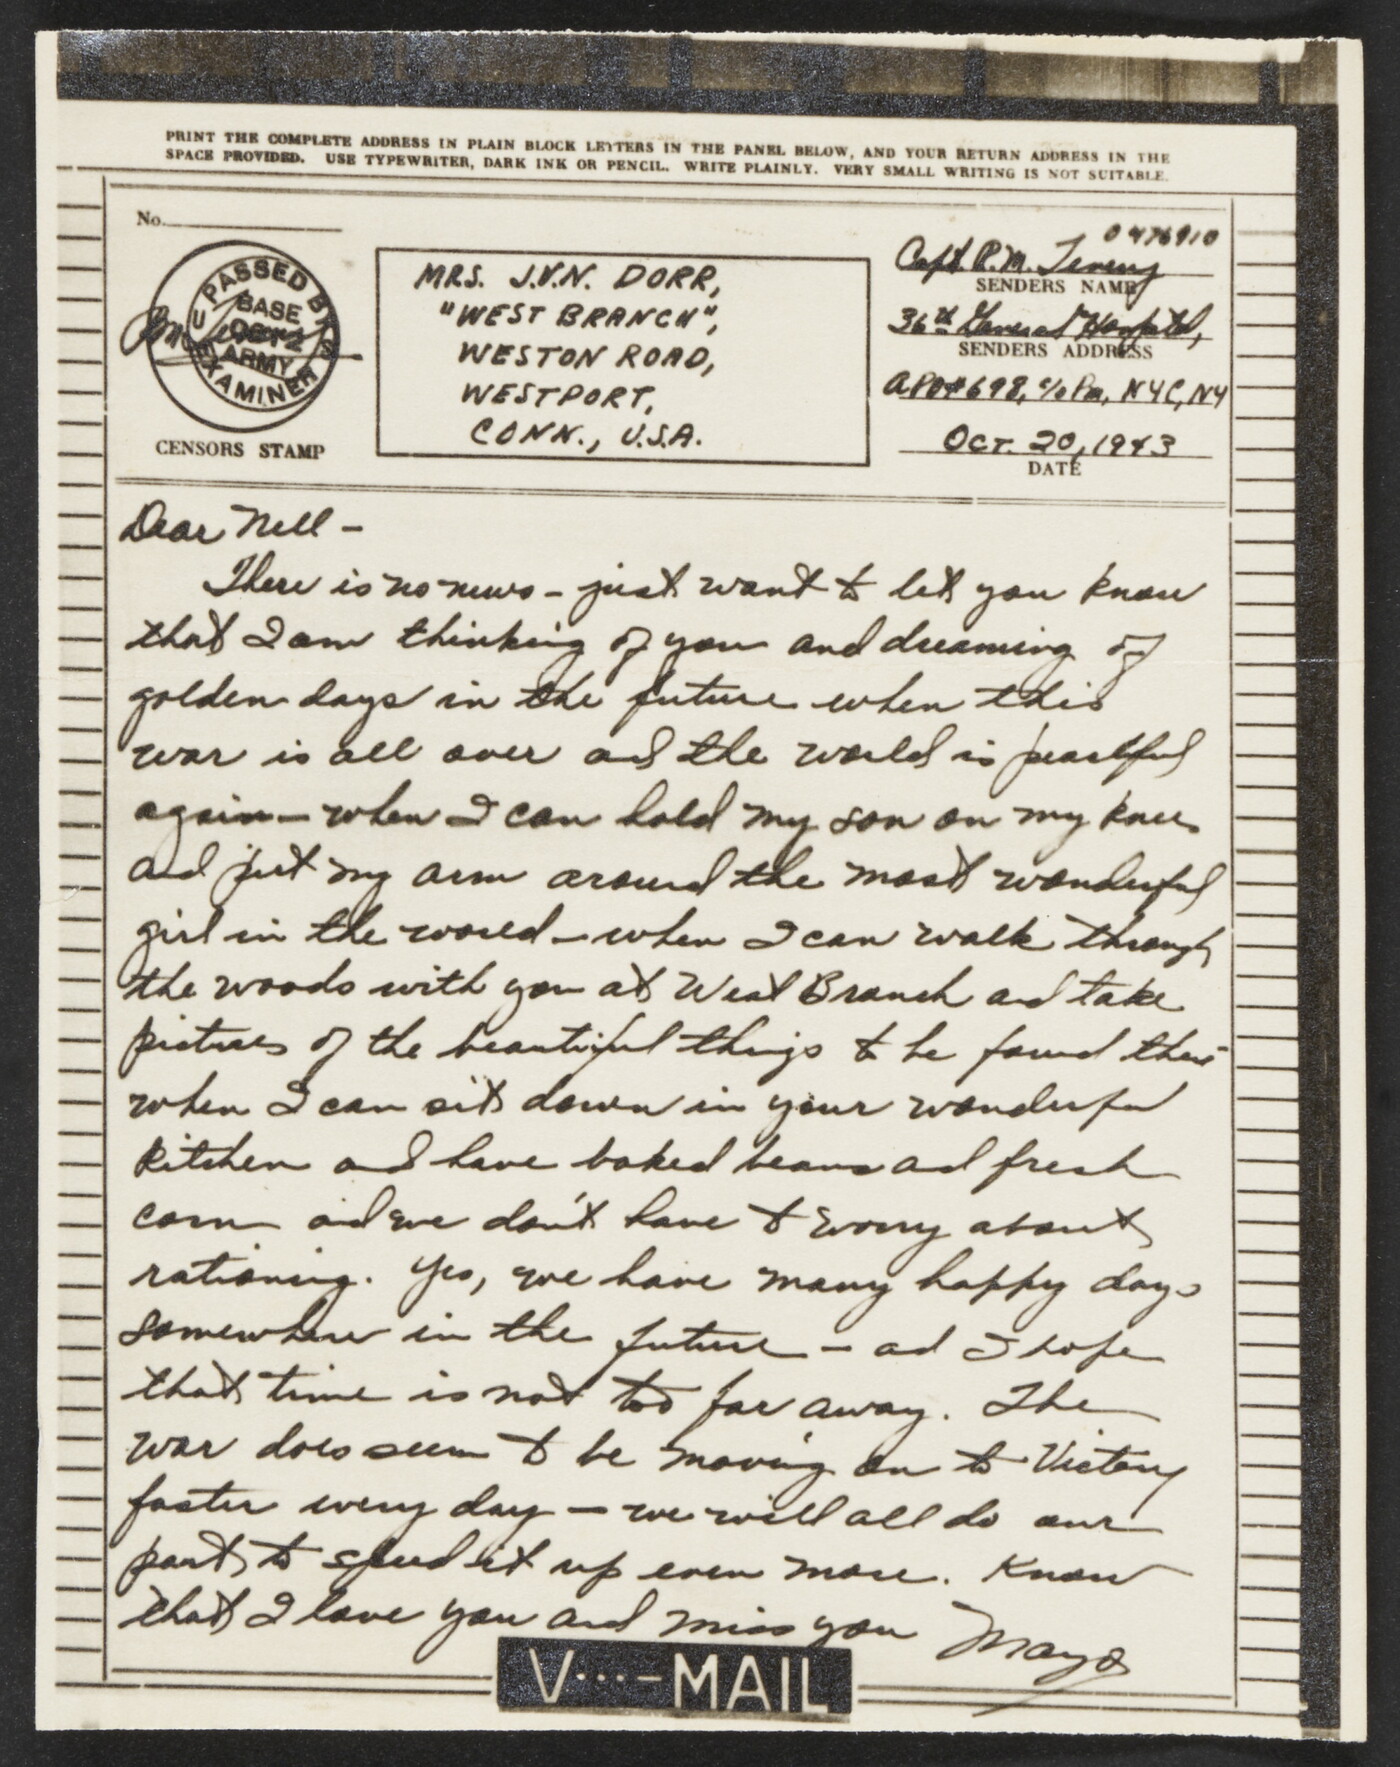 PRINT THE COMPLETE ADDRESS IN PLAIN BLOCK LETTERS IN THE PANEL BELOW, AND YOUR RETURN ADDRESS IN THE
SPACE PROVIDED. USE TYPEWRITER, DARK INK OR PENCIL. WRITE PLAINLY. VERY SMALL WRITING IS NOT SUITABLE.
No.
PASSED BY
BASE
ARMY
EXAMINER
CENSORS STAMP
MRS. J.V.N. DORR,
"WEST BRANCH",
WESTON ROAD,
WESTPORT,
CONN., U.S.A.
0476910
Capt. R.M.
SENDERS NAME
36th General Hospital,
SENDERS ADDRESS
APO#698, c/o Pm, NYC, NY
OCT. 20, 1943
DATE
Dear Nell —
There is no news – just want to let you know
that I am thinking of you and dreaming of
golden days in the future when this
war is all over and the world is peaceful
again — when I can hold my son on my knee
and put my arm around the most wonderful
girl in the world — when I can walk through
the woods with you at West Branch and take
pictures of the beautiful things to be found there
when I can sit down in your wonderful
kitchen and have baked beans and fresh
corn and we don't have to worry about
rationing. Yes, we have many happy days
somewhere in the future — and I hope
that time is not too far away. The
war does seem to be moving on to Victory
faster every day — we will all do our
part to speed it up even more. Know
that I love you and miss you Mayo
V···—MAIL